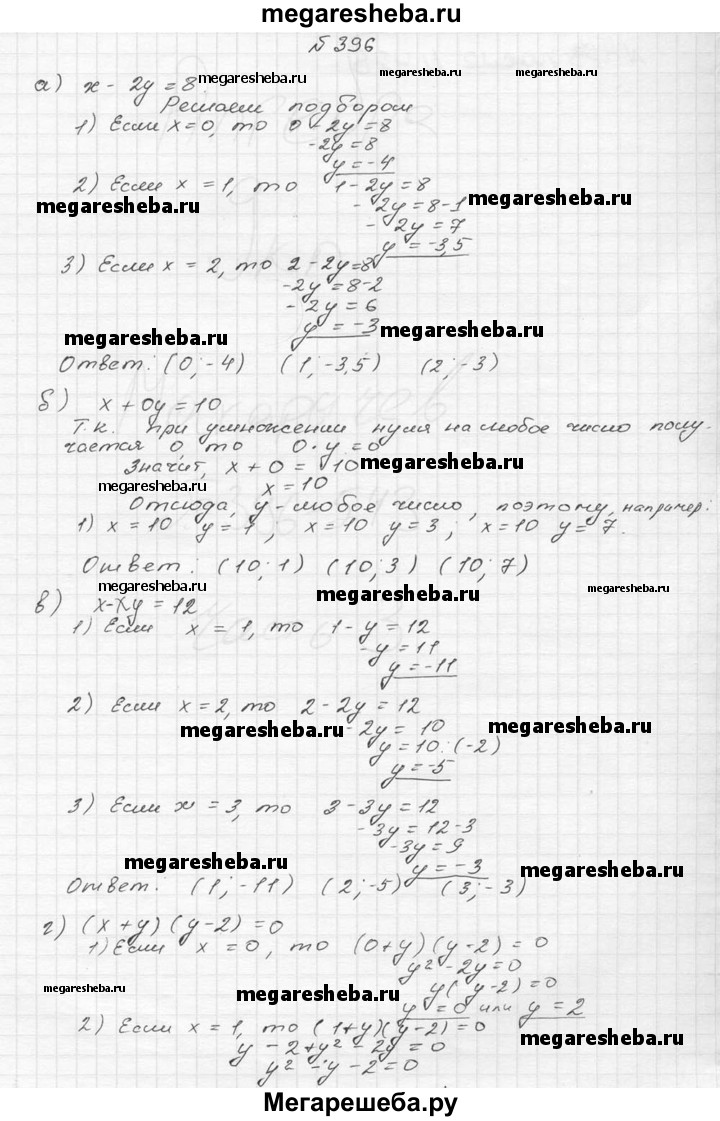 megaresheba.ru
№ 396
а) x - 2y = 8 megaresheba.ru megaresheba.ru
Решаем подбором
1) Если x = 0, то 0 - 2y = 8
-2y = 8
y = -4
2) Если x = 1, то 1 - 2y = 8
megaresheba.ru - 2y = 8-1 megaresheba.ru
- 2y = 7
y = -3,5
3) Если x = 2, то 2 - 2y = 8
-2y = 8-2
- 2y = 6
megaresheba.ru y = -3 megaresheba.ru
Ответ: (0; -4) (1; -3,5) (2; -3)
б) x + 0y = 10
Т.к. при умножении нуля на любое число полу-
чается 0, то 0·y = 0
Значит, x + 0 = 10 megaresheba.ru
megaresheba.ru x = 10
Отсюда, y - любое число, поэтому, например:
1) x = 10 y = 1, x = 10 y = 3; x = 10 y = 7.
Ответ: (10; 1) (10; 3) (10; 7)
megaresheba.ru megaresheba.ru megaresheba.ru
в) x-xy = 12
1) Если x = 1, то 1 - y = 12
-y = 11
y = -11
2) Если x = 2, то 2 - 2y = 12
megaresheba.ru - 2y = 10 megaresheba.ru
y = 10 : (-2)
y = -5
3) Если x = 3, то 3 - 3y = 12
- 3y = 12-3
-3y = 9
megaresheba.ru y = -3 megaresheba.ru
Ответ: (1; -11) (2; -5) (3; -3)
г) (x + y) (y - 2) = 0
1) Если x = 0, то (0+y) (y - 2) = 0
y² - 2y = 0
y( y -2) = 0
megaresheba.ru megaresheba.ru y = 0 или y = 2 megaresheba.ru
2) Если x = 1, то (1+y)(y-2) = 0
y - 2 + y² - 2y = 0
y² - y - 2 = 0
Мегарешеба.ру